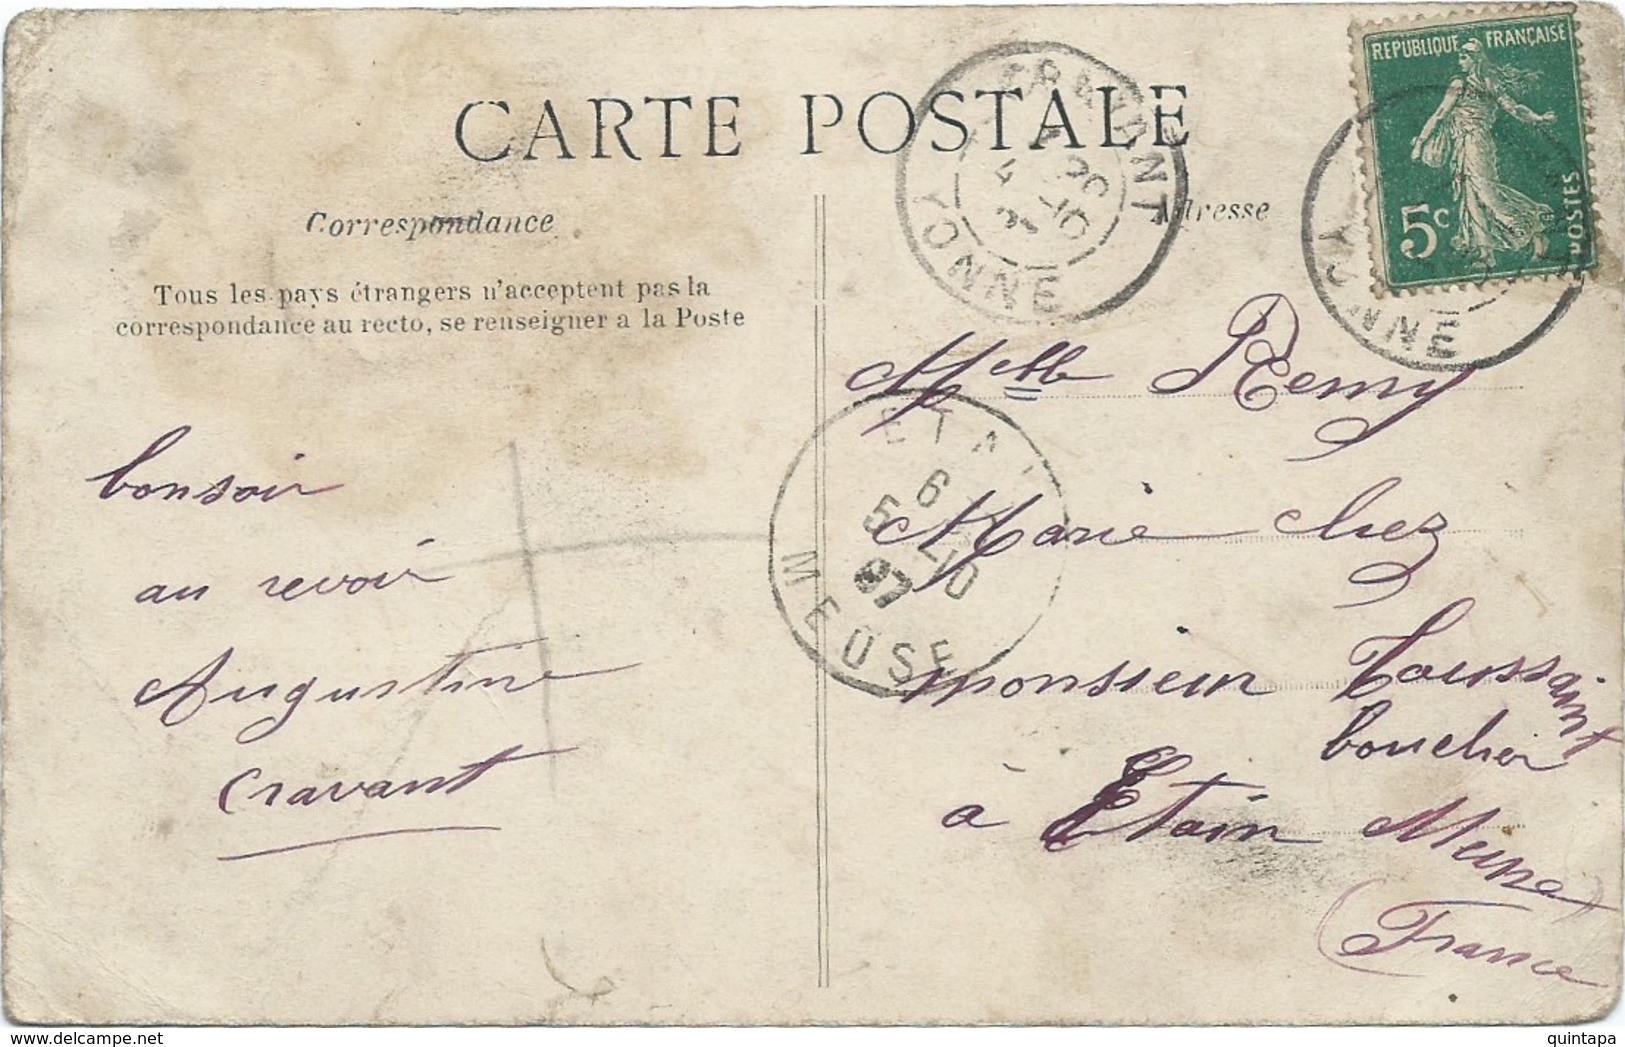 CARTE POSTALE
Correspondance
Adresse
Tous les pays étrangers n'acceptent pas la
correspondance au recto, se renseigner a la Poste
REPUBLIQUE FRANÇAISE
5c
POSTES
CRAVANT
YONNE
YONNE
ETAI
6
5 -10
07
MEUSE
bonsoir
au revoir
Augustine
Cravant
Melle Remy
Marie chez
monsieur Toussaint
boucher
à Etain Meuse
(France)
delcampe.net
quintapa